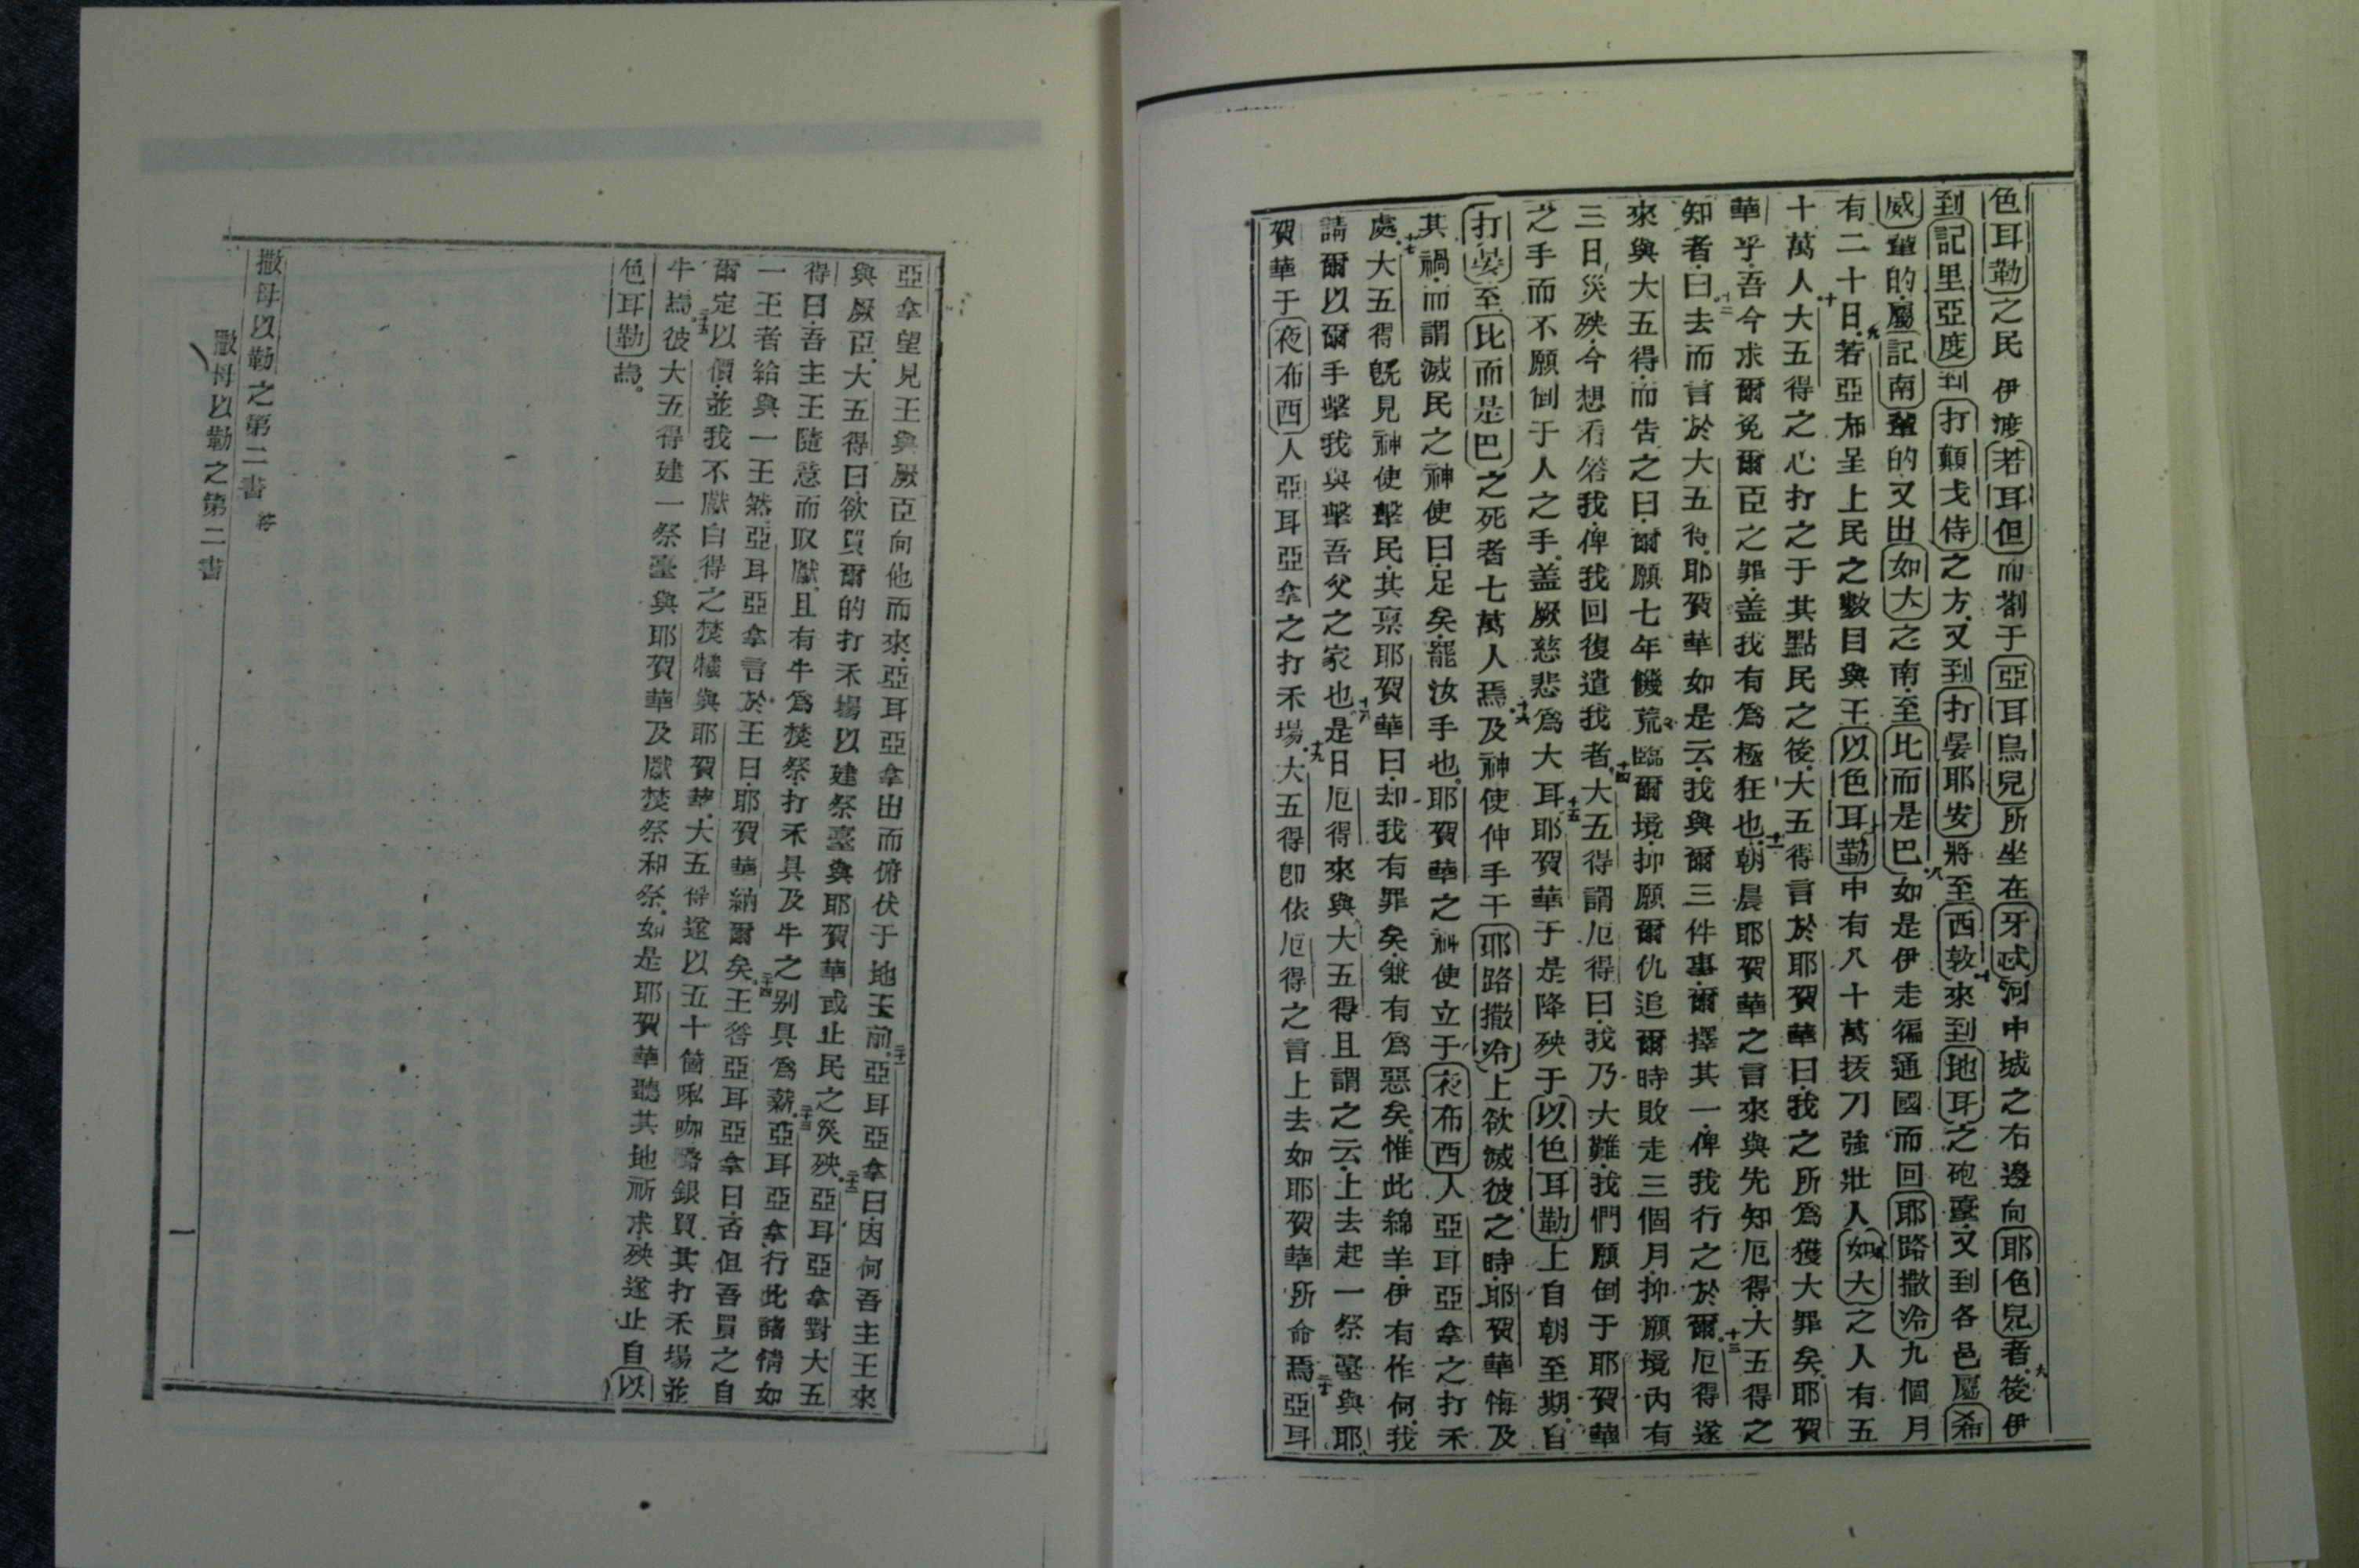 色耳勒之民伊渡若耳但而劄于亞耳烏兒所坐在牙忒河中城之右邊向耶色兒者六後伊
到記里亞度到打顛戈侍之方又到打晏耶安將至西敦七來到地耳之砲臺又到各邑屬希
威輩的屬記南輩的又出如大之南至比而是巴八如是伊走徧通國而回耶路撒冷九個月
有二十日九若亞布呈上民之數目與王以色耳勒中有八十萬拔刀強壯人如大之人有五
十萬人十大五得之心打之于其點民之後大五得言於耶賀華曰我之所為獲大罪矣耶賀
華乎吾今求爾免爾臣之罪蓋我有為極狂也十一朝晨耶賀華之言來與先知厄得大五得之
知者曰十二去而言於大五得耶賀華如是云我與爾三件事爾擇其一俾我行之於爾十三厄得遂
來與大五得而告之曰爾願七年饑荒臨爾境抑願爾仇追爾時敗走三個月抑願境內有
三日災殃今想看答我俾我回復遣我者十四大五得謂厄得曰我乃大難我們願倒于耶賀華
之手而不願倒于人之手蓋厥慈悲為大耳十五耶賀華于是降殃于以色耳勒上自朝至期自
打晏至比而是巴之死者七萬人焉十六及神使伸手于耶路撒冷上欲滅彼之時耶賀華悔及
其禍而謂滅民之神使曰足矣罷汝手也耶賀華之神使立于夜布西人亞耳亞拿之打禾
處十七大五得既見神使擊民其稟耶賀華曰却我有罪矣兼有為惡矣惟此綿羊伊有作何我
請爾以爾手擊我與擊吾父之家也十八是日厄得來與大五得且謂之云上去起一祭臺與耶
賀華于夜布西人亞耳亞拿之打禾場十九大五得即依厄得之言上去如耶賀華所命焉二十亞耳
亞拿望見王與厥臣向他而來亞耳亞拿出而俯伏于地王前二十一亞耳亞拿曰因何吾主王來
與厥臣大五得曰欲買爾的打禾場以建祭臺與耶賀華或止民之災殃二十二亞耳亞拿對大五
得曰吾主王隨意而取獻且有牛為焚祭打禾具及牛之別具為薪二十三亞耳亞拿行此諸情如
一王者給與一王然亞耳亞拿言於王曰耶賀華納爾矣二十四王答亞耳亞拿曰否但吾買之自
爾定以價並我不獻白得之焚犧與耶賀華大五得遂以五十箇㖠咖嘮銀買其打禾場並
牛焉二十五彼大五得建一祭臺與耶賀華及獻焚祭和祭如是耶賀華聽其地祈求殃遂止自以
色耳勒焉
撒母以勒之第二書 終
撒母以勒之第二書 一